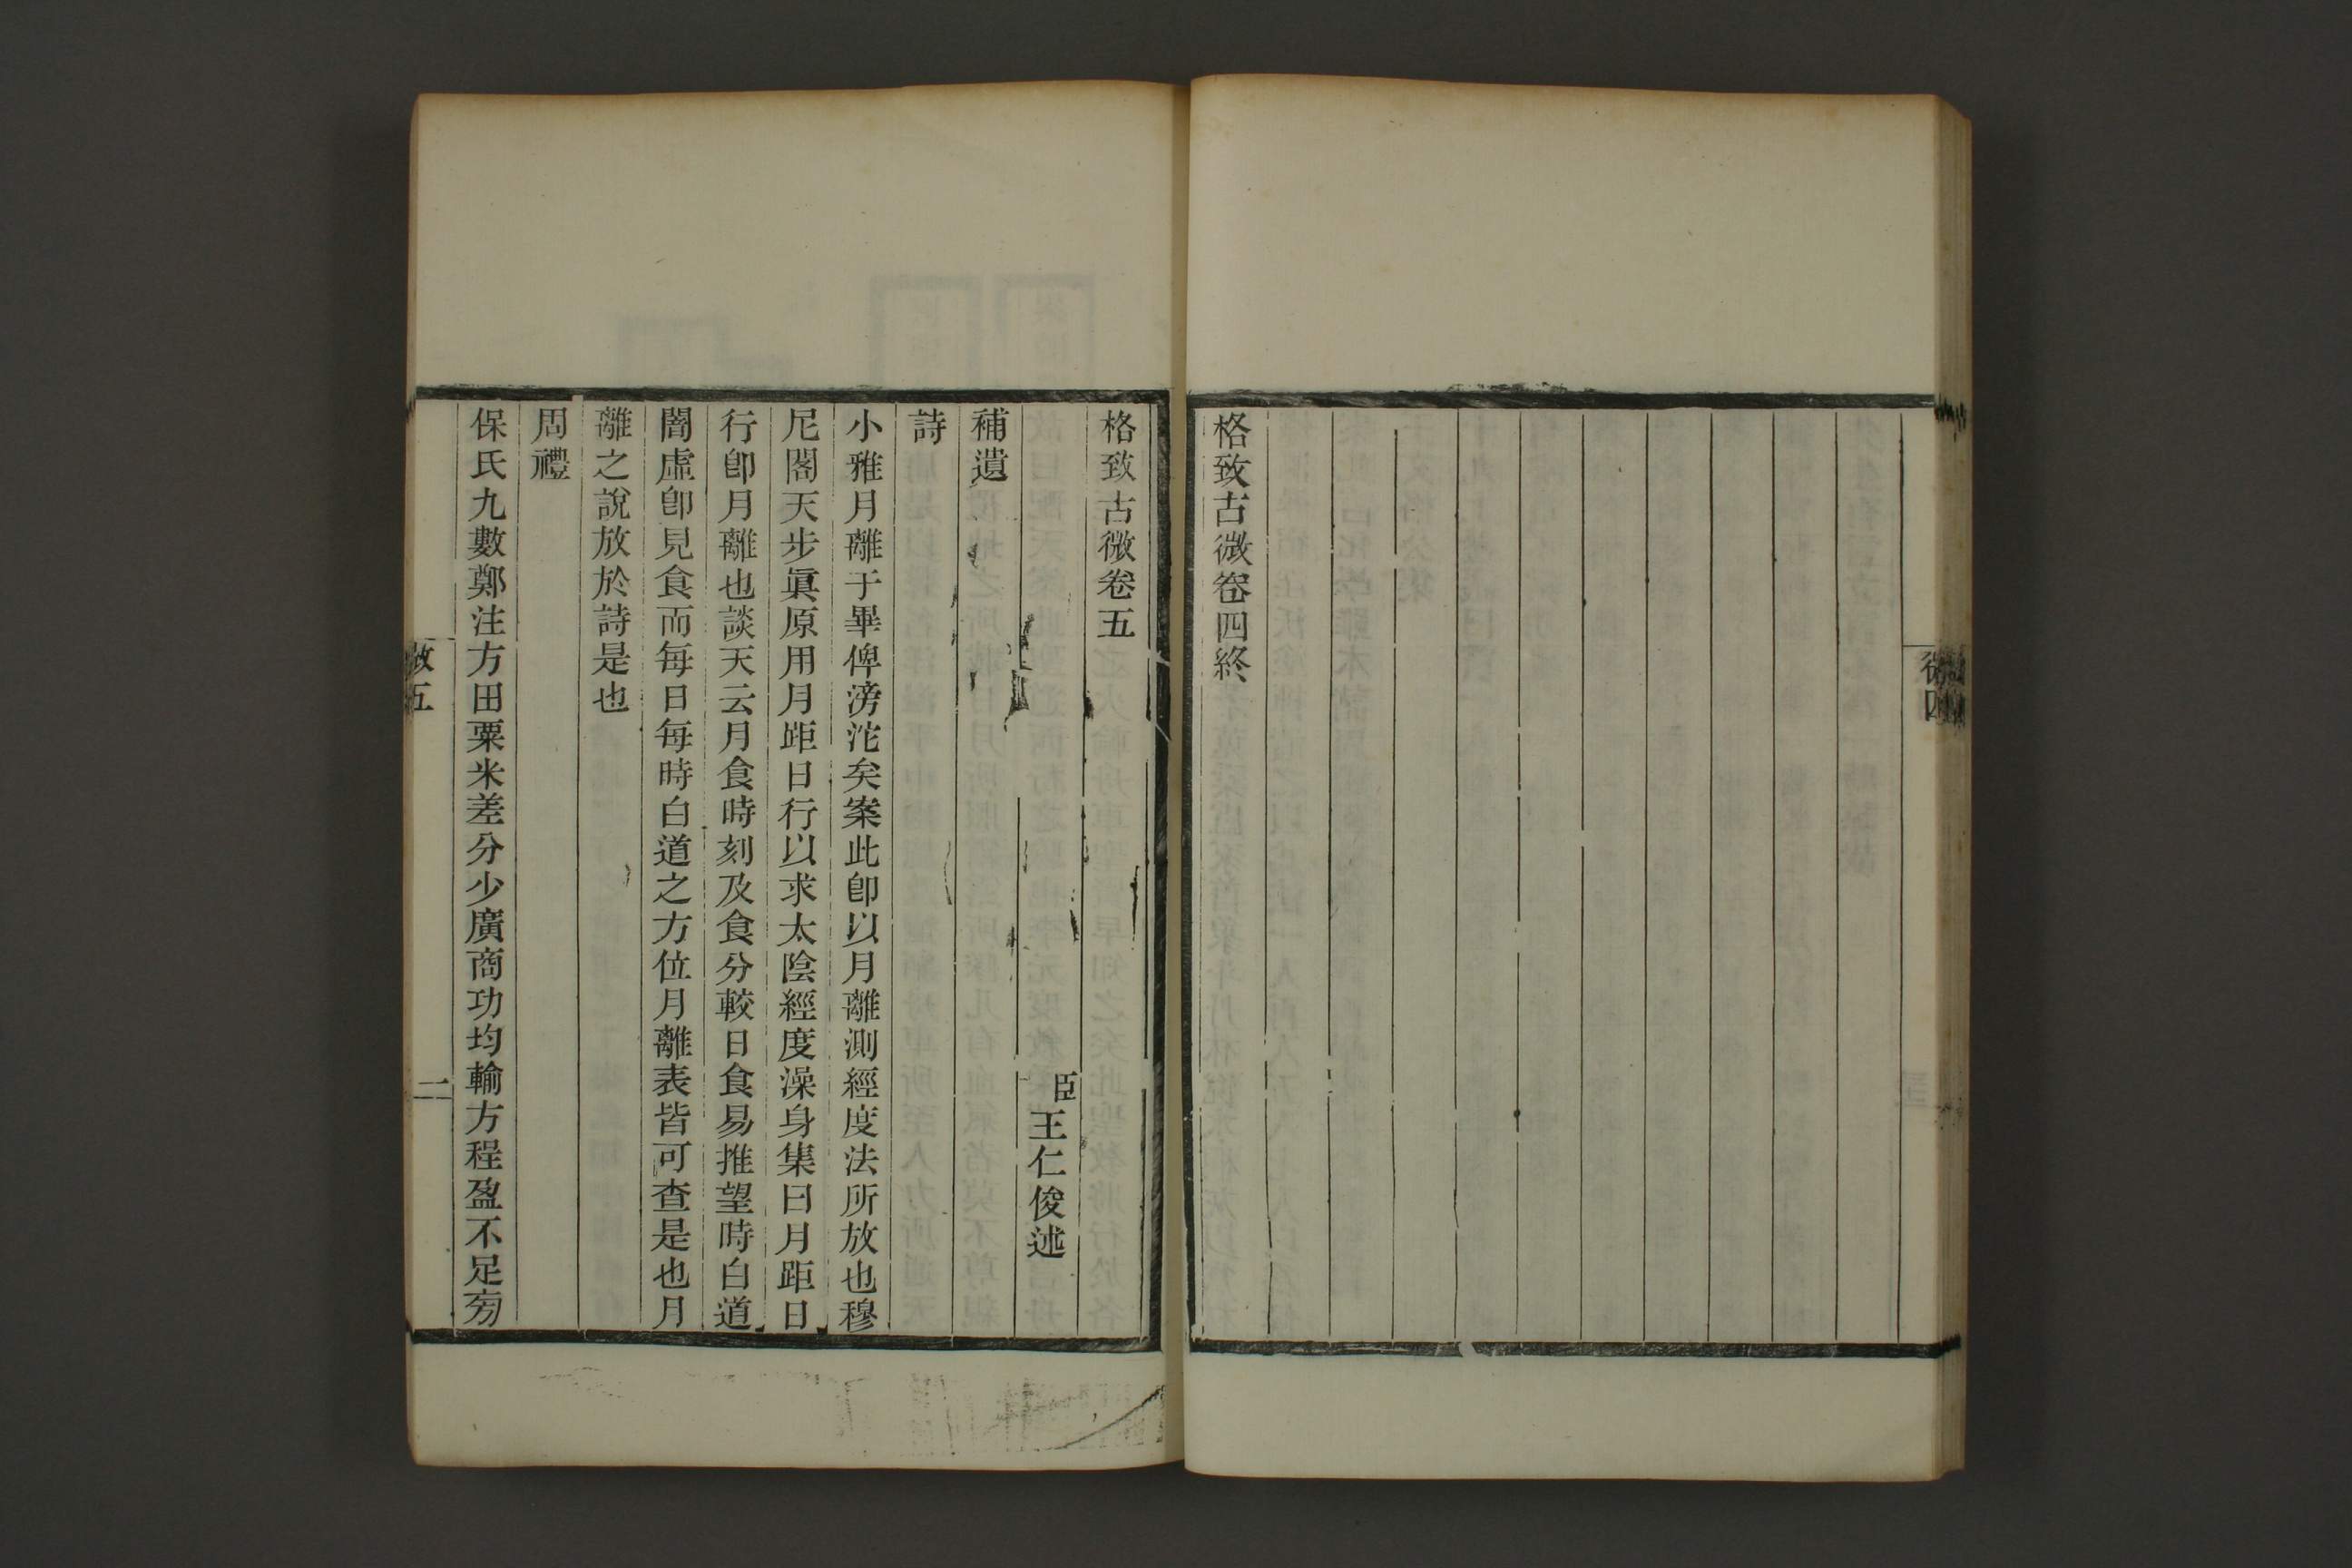 格致古微卷四終
微四
格致古微卷五
臣王仁俊述
補遺
詩
小雅月離于畢俾滂沱矣案此卽以月離測經度法所放也穆
尼閣天步眞原用月距日行以求太陰經度澡身集曰月距日
行卽月離也談天云月食時刻及食分較日食易推望時白道
闇虛卽見食而每日每時白道之方位月離表皆可查是也月
離之說放於詩是也
周禮
保氏九數鄭注方田粟米差分少廣商功均輸方程盈不足旁
微五
一